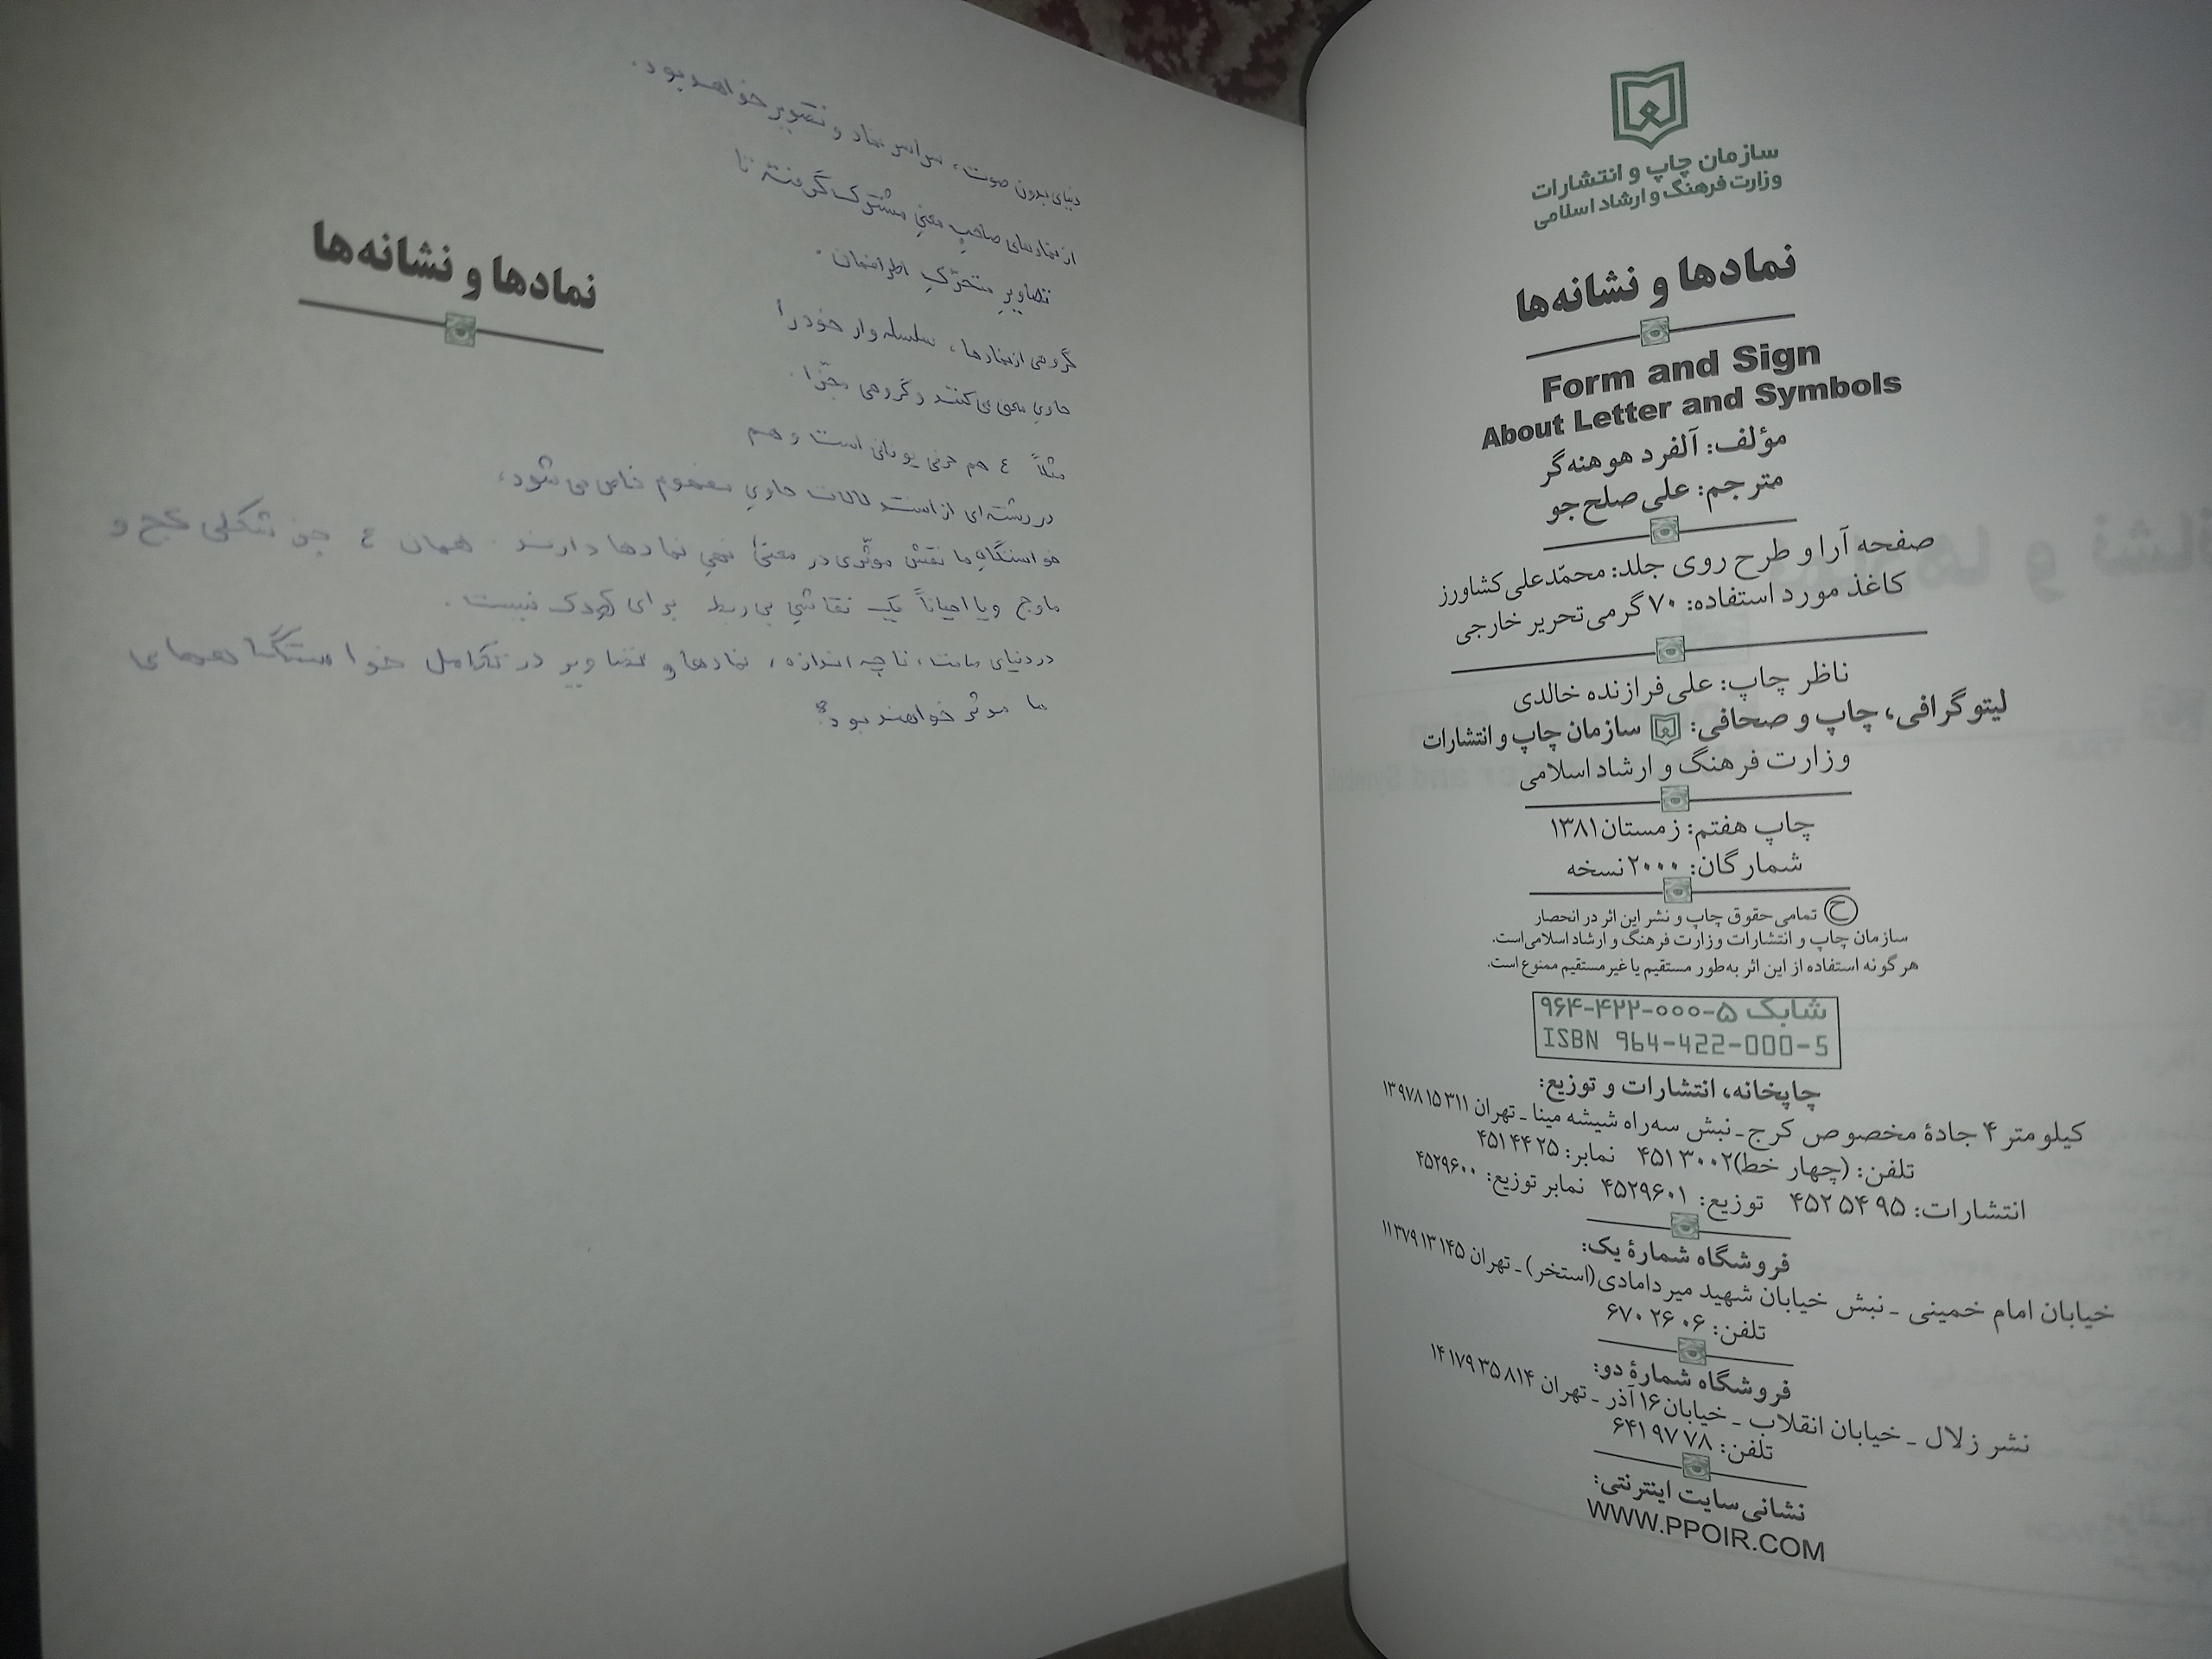 سازمان چاپ و انتشارات
وزارت فرهنگ و ارشاد اسلامی
نمادها و نشانه‌ها
Form and Sign
About Letter and Symbols
مؤلف: آلفرد هوهنه‌گر
مترجم: علی صلح‌جو
صفحه آرا و طرح روی جلد: محمّدعلی کشاورز
کاغذ مورد استفاده: ۷۰ گرمی تحریر خارجی
ناظر چاپ: علی فرازنده خالدی
لیتوگرافی، چاپ و صحافی: سازمان چاپ و انتشارات
وزارت فرهنگ و ارشاد اسلامی
چاپ هفتم: زمستان ۱۳۸۱
شمارگان: ۲۰۰۰ نسخه
ح تمامی حقوق چاپ و نشر این اثر در انحصار
سازمان چاپ و انتشارات وزارت فرهنگ و ارشاد اسلامی است.
هر گونه استفاده از این اثر به‌طور مستقیم یا غیر مستقیم ممنوع است.
شابک ۵-۰۰۰-۴۲۲-۹۶۴
ISBN 964-422-000-5
چاپخانه، انتشارات و توزیع:
کیلومتر ۴ جادهٔ مخصوص کرج ـ نبش سه‌راه شیشه مینا ـ تهران ۱۳۹۷۸۱۵۳۱۱
تلفن: (چهار خط) ۴۵۱۳۰۰۲ نمابر: ۴۵۱۴۴۲۵
انتشارات: ۴۵۲۵۴۹۵ توزیع: ۴۵۲۹۶۰۱ نمابر توزیع: ۴۵۲۹۶۰۰
فروشگاه شمارهٔ یک:
خیابان امام خمینی ـ نبش خیابان شهید میردامادی (استخر) ـ تهران ۱۱۳۷۹۱۳۱۴۵
تلفن: ۶۷۰۲۶۰۶
فروشگاه شمارهٔ دو:
نشر زلال ـ خیابان انقلاب ـ خیابان ۱۶ آذر ـ تهران ۱۴۱۷۹۳۵۸۱۴
تلفن: ۶۴۱۹۷۷۸
نشانی سایت اینترنتی:
WWW.PPOIR.COM
نمادها و نشانه‌ها
دنیای بدون صوت، سراسر نماد و تصویر خواهد بود.
از نمادهای صاحبِ معنیِ مشترک گرفته تا
تصاویرِ متحرّکِ اطرافمان.
گروهی از نمادها، سلسله‌وار خود را
حاویِ معنی می‌کنند و گروهی مجزّا.
مثلاً ع هم حرفی یونانی است و هم
در رشته‌ای از است حاویِ مفهوم خاص می‌شود،
خواستگاهِ ما نقش موثّری در معنیِ نمادها دارند. همان ع جز شکلی کج و
ماوج و یا احیاناً یک نقاشیِ بی‌ربط برای کودک نیست.
در دنیای ساکت، تا چه اندازه، نمادها و تصاویر در تکامل خواستگاه‌های
ما موثر خواهند بود؟